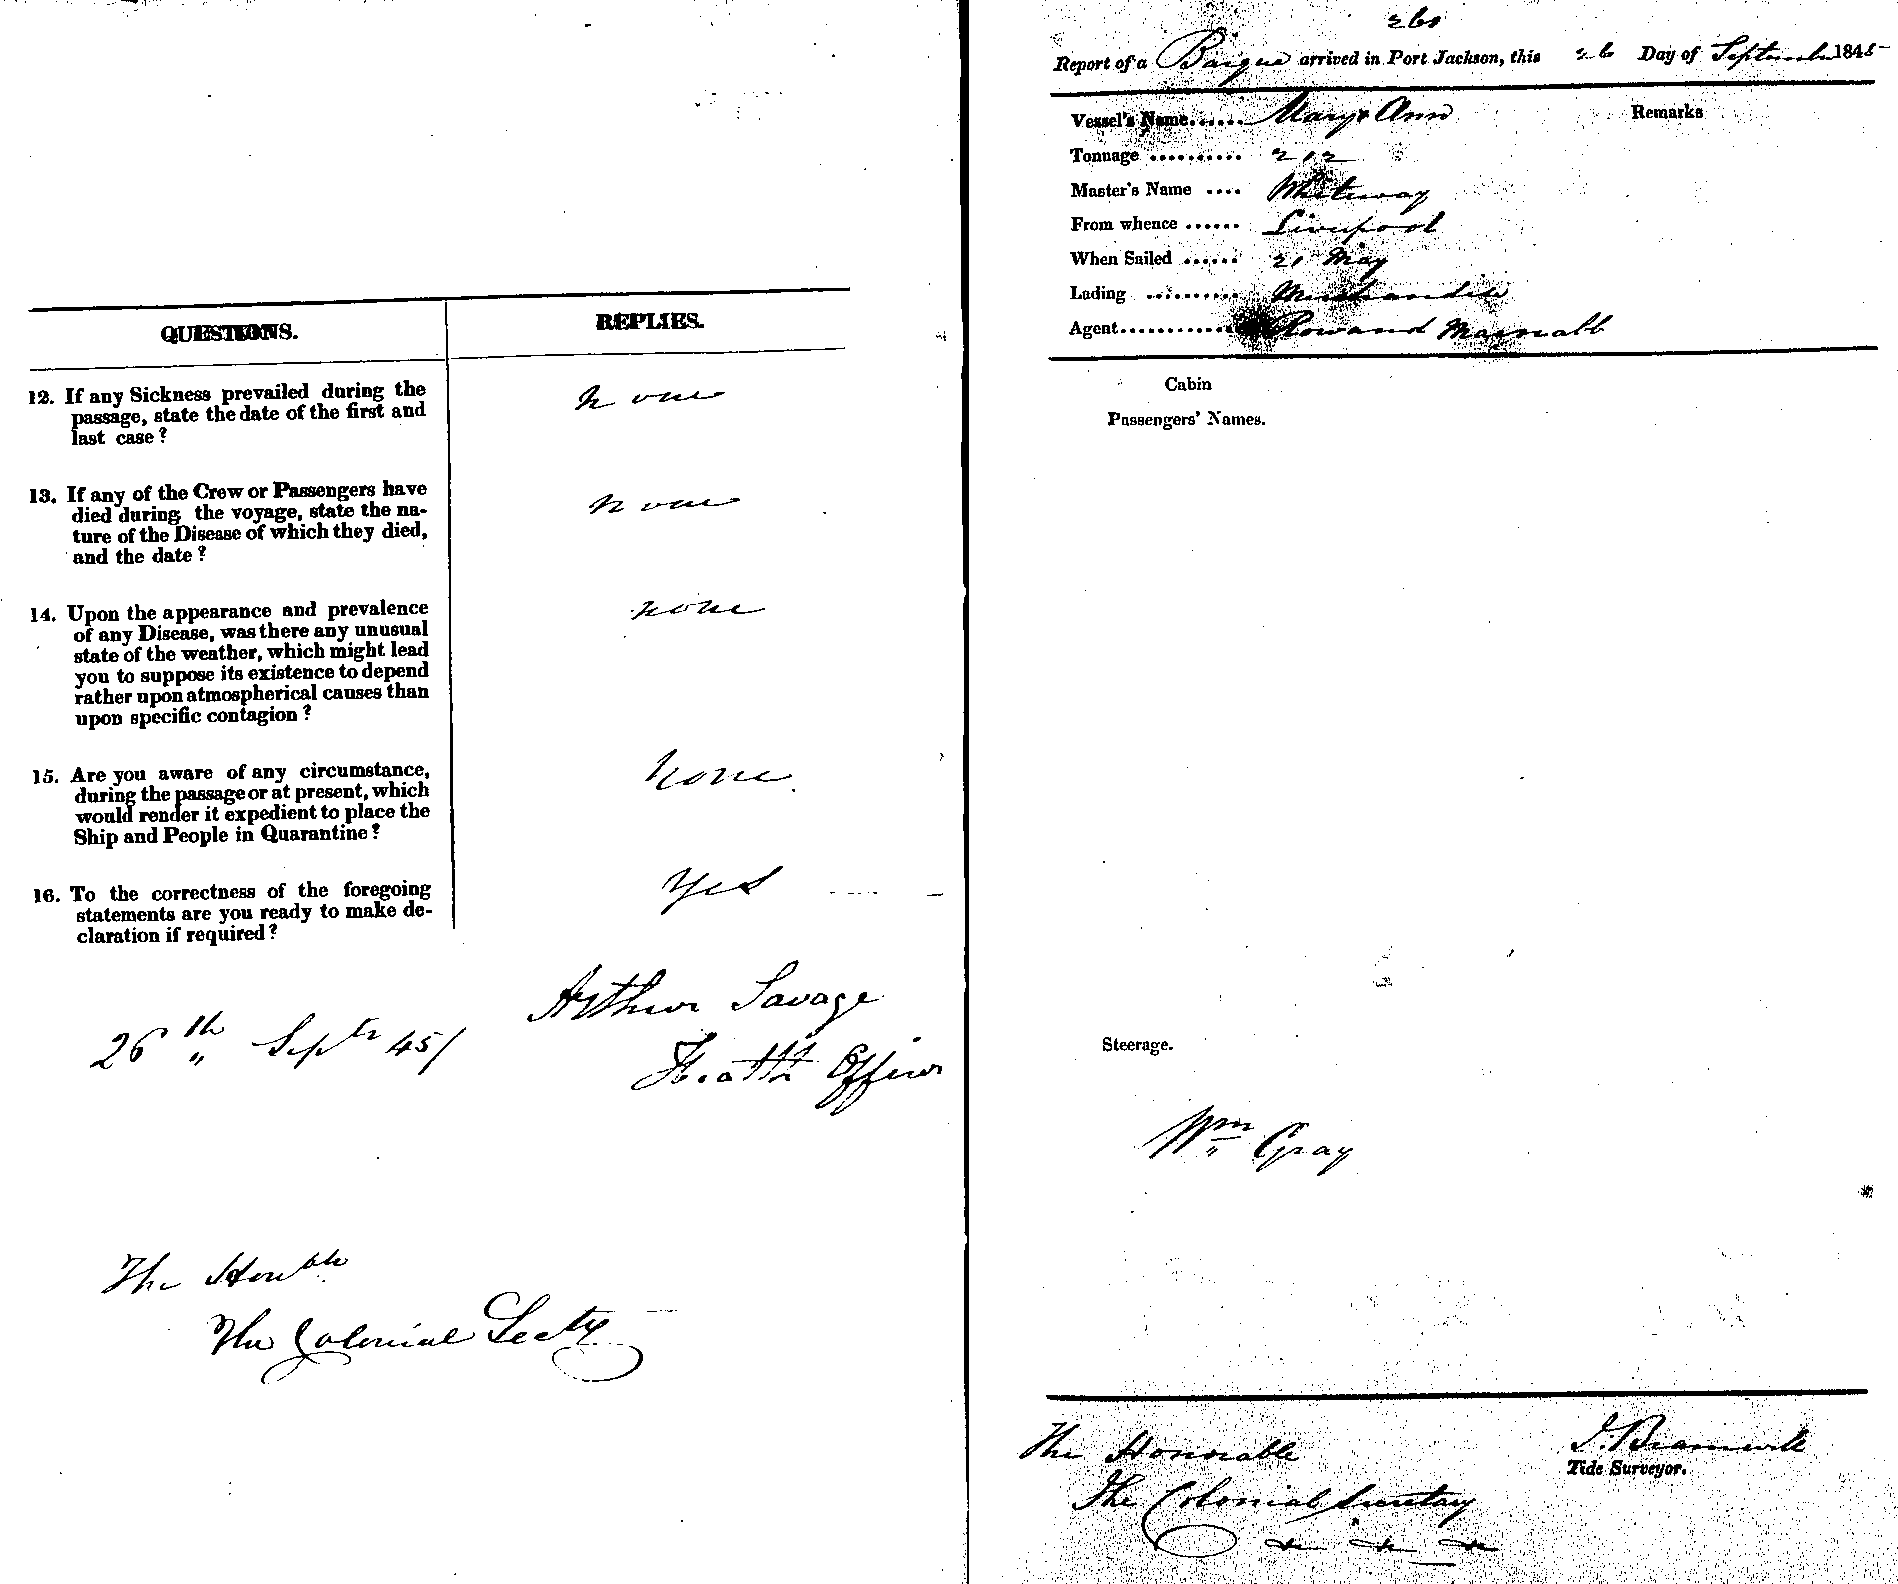 QUESTIONS.
REPLIES.
12. If any Sickness prevailed during the
passage, state the date of the first and
last case?
none
13. If any of the Crew or Passengers have
died during the voyage, state the na-
ture of the Disease of which they died,
and the date?
none
14. Upon the appearance and prevalence
of any Disease, was there any unusual
state of the weather, which might lead
you to suppose its existence to depend
rather upon atmospherical causes than
upon specific contagion?
none
15. Are you aware of any circumstance,
during the passage or at present, which
would render it expedient to place the
Ship and People in Quarantine?
none
16. To the correctness of the foregoing
statements are you ready to make de-
claration if required?
Yes
Arthur Savage
Health Officer
26th Septr 45/
The Honble
The Colonial Secty
260
Report of a Barque arrived in Port Jackson, this 26 Day of September 1845
Vessel's Name...... Mary Ann
Remarks
Tonnage .......... 212
Master's Name .... Whiteway
From whence ...... Liverpool
When Sailed ...... 21 May
Lading .......... Merchandise
Agent............ Rowand Macnabb
Cabin
Passengers' Names.
Steerage.
Wm Gray
The Honorable
The Colonial Secretary
J. Bramwell
Tide Surveyor.